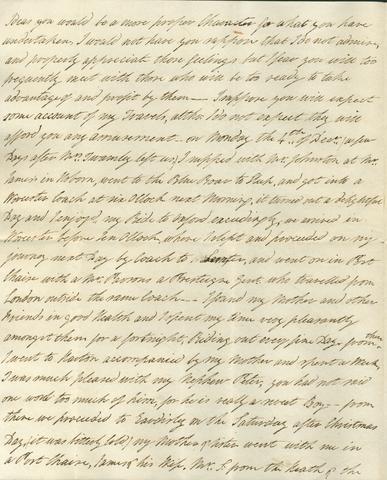 you would be a more proper Character for what you have
undertaken, I would not have you suppose that I do not admire,
and properly appreciate those feelings but I fear you will too
frequently meet with those who will be too ready to take
advantage of and profit by them — I suppose you will expect
some account of my Travels, altho I do not expect they will
afford you any amusement — on Monday the 4th of Decr. (a few
Days after Mrs. left us) I supped with Mr. Johnston at Mr.
James's in Holborn, went to the Blue Boar to Sleep, and got into a
Worcester Coach at six oClock next Morning, it turned out a delightful
Day and I enjoyed my Ride to Oxford exceedingly, we arrived in
Worcester before Ten oClock, where I slept and proceeded on my
journey next Day by Coach to and went on in Post
Chaise with a Mr. Parsons a Gent. who travelled from
London outside the same Coach — I found my Mother and other
Friends in good Health and I spent my time very pleasantly
amongst them for a fortnight, Riding out every fine Day — from then
I went to accompanied by my Mother and spent a Week,
I was much pleased with my Nephew Peter, you had not said
one word too much of him, for he is really a sweet Boy — from
there we proceeded to Eardisley on the Saturday after Christmas
Day, (it was bitterly Cold) my Mother & Peter went with me in
a Post Chaise, James & his Wife, Mr. from the Heath & the